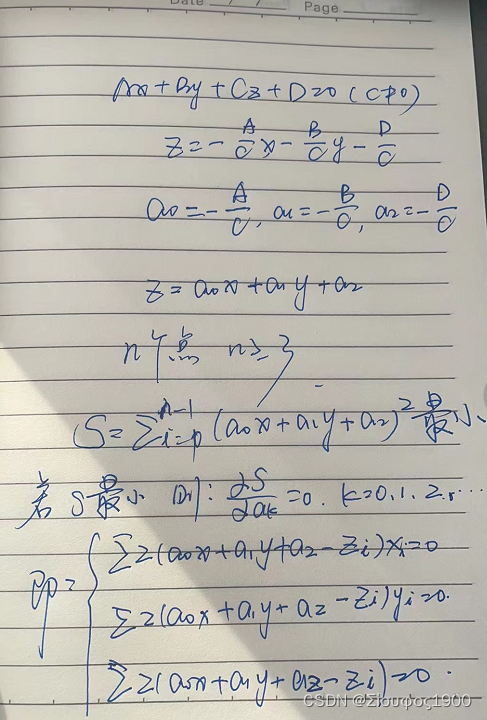 Date
Page
Ax+By+Cz+D=0(C≠0)
z=-A/C x-B/C y-D/C
a0=-A/C, a1=-B/C, a2=-D/C
z=a0x+a1y+a2
n个点 n≥3
S=∑i=0^n-1(a0x+a1y+a2)^2最小
若S最小 则:∂S/∂ak=0. k=0.1.2.…
即={∑2(a0x+a1y+a2-zi)xi=0
∑2(a0x+a1y+a2-zi)yi=0.
∑2(a0x+a1y+a2-zi)=0.
CSDN @Ζίουφος1900